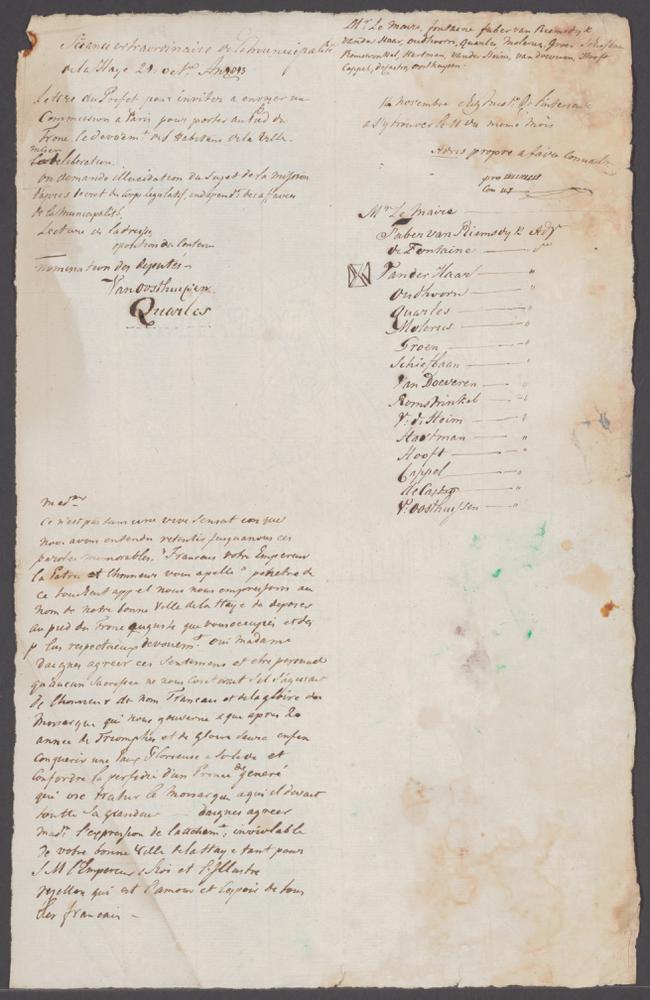 Séance extraordinaire de la municipalité
de la Haye 29 octbr. An 1813
Lettre du Prefet pour inviter a envoyer une
Commission a Paris pour porter au pied du
Trone le devouemt. des habitans de la Ville
mise en
deliberation.
on demande Elucidation du Sujet de la mission
d'apres decret du Corps legislatif, independt. des affaires
de la municipalité.
Lecture de ladresse,
exposition du Contenu
Nomination des deputés
Van Oosthuyse
Quarles
Mr. Le Maire, fontaine faber van Riemsdyk
Vander Haar, oudhoorn, Quarles Molerus, Groen Schieflaan
Romswinkel, Hartman, vander Heim, van doeveren, Hooft
Cappel, decastro, oosthuysen
1 novembre
a s'y trouver le 11 du meme mois
Adres propre a faire Connaitre
Mr Le Maire
Faber van Riemsdyk Adjt
de Fontaine
Van der Haar "
Oudhoorn "
Quarles "
Molerus "
Groen "
Schieflaan "
Van Doeveren "
Romswinkel "
V: d: Heim "
Hartman "
Hooft "
Cappel "
de Castro "
V: oosthuysen "
madme
Ce n'est pas sans une vive Sensation que
nous avons entendu retentir jusqua nous ces
paroles memorables. "Francais votre Empereur
la Patrie et l'honneur vous apelle" penetre de
ce touchant appel nous nous empressons au
nom de notre bonne Ville de la Haye de deposer
au pied du Trone auguste que vous occupés et des
plus respectueux devouemt. oui madame
daignes agreer ces Sentimens et etre persuadé
qu'aucun Sacrifice ne nous Couterait S'il S'agissait
de l'honneur du nom Francais et de la gloire du
Monarque qui nous gouverne & que apres 20
années de Triomphes et de gloire Saura enfin
Conquerir une Paix Glorieuse & Solide et
Confondre la perfidie d'un Prince degeneré
qui ose trahir le Monarque a qui il devait
toutte Sa grandeur — daignes agreer
made. l'expression de lattachemt. inviolable
de votre bonne Ville de la Haye tant pour
S M l'Empereur & Roi et l'Illustre
rejetton qui est l'amour et l'espoir de tous
les francais —